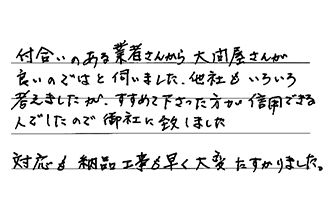 付合いのある業者さんから大問屋さんが
良いのではと伺いました.他社もいろいろ
考えましたが、すすめて下さった方が信用できる
人でしたので御社に致しました
対応も納品工事も早く大変たすかりました。